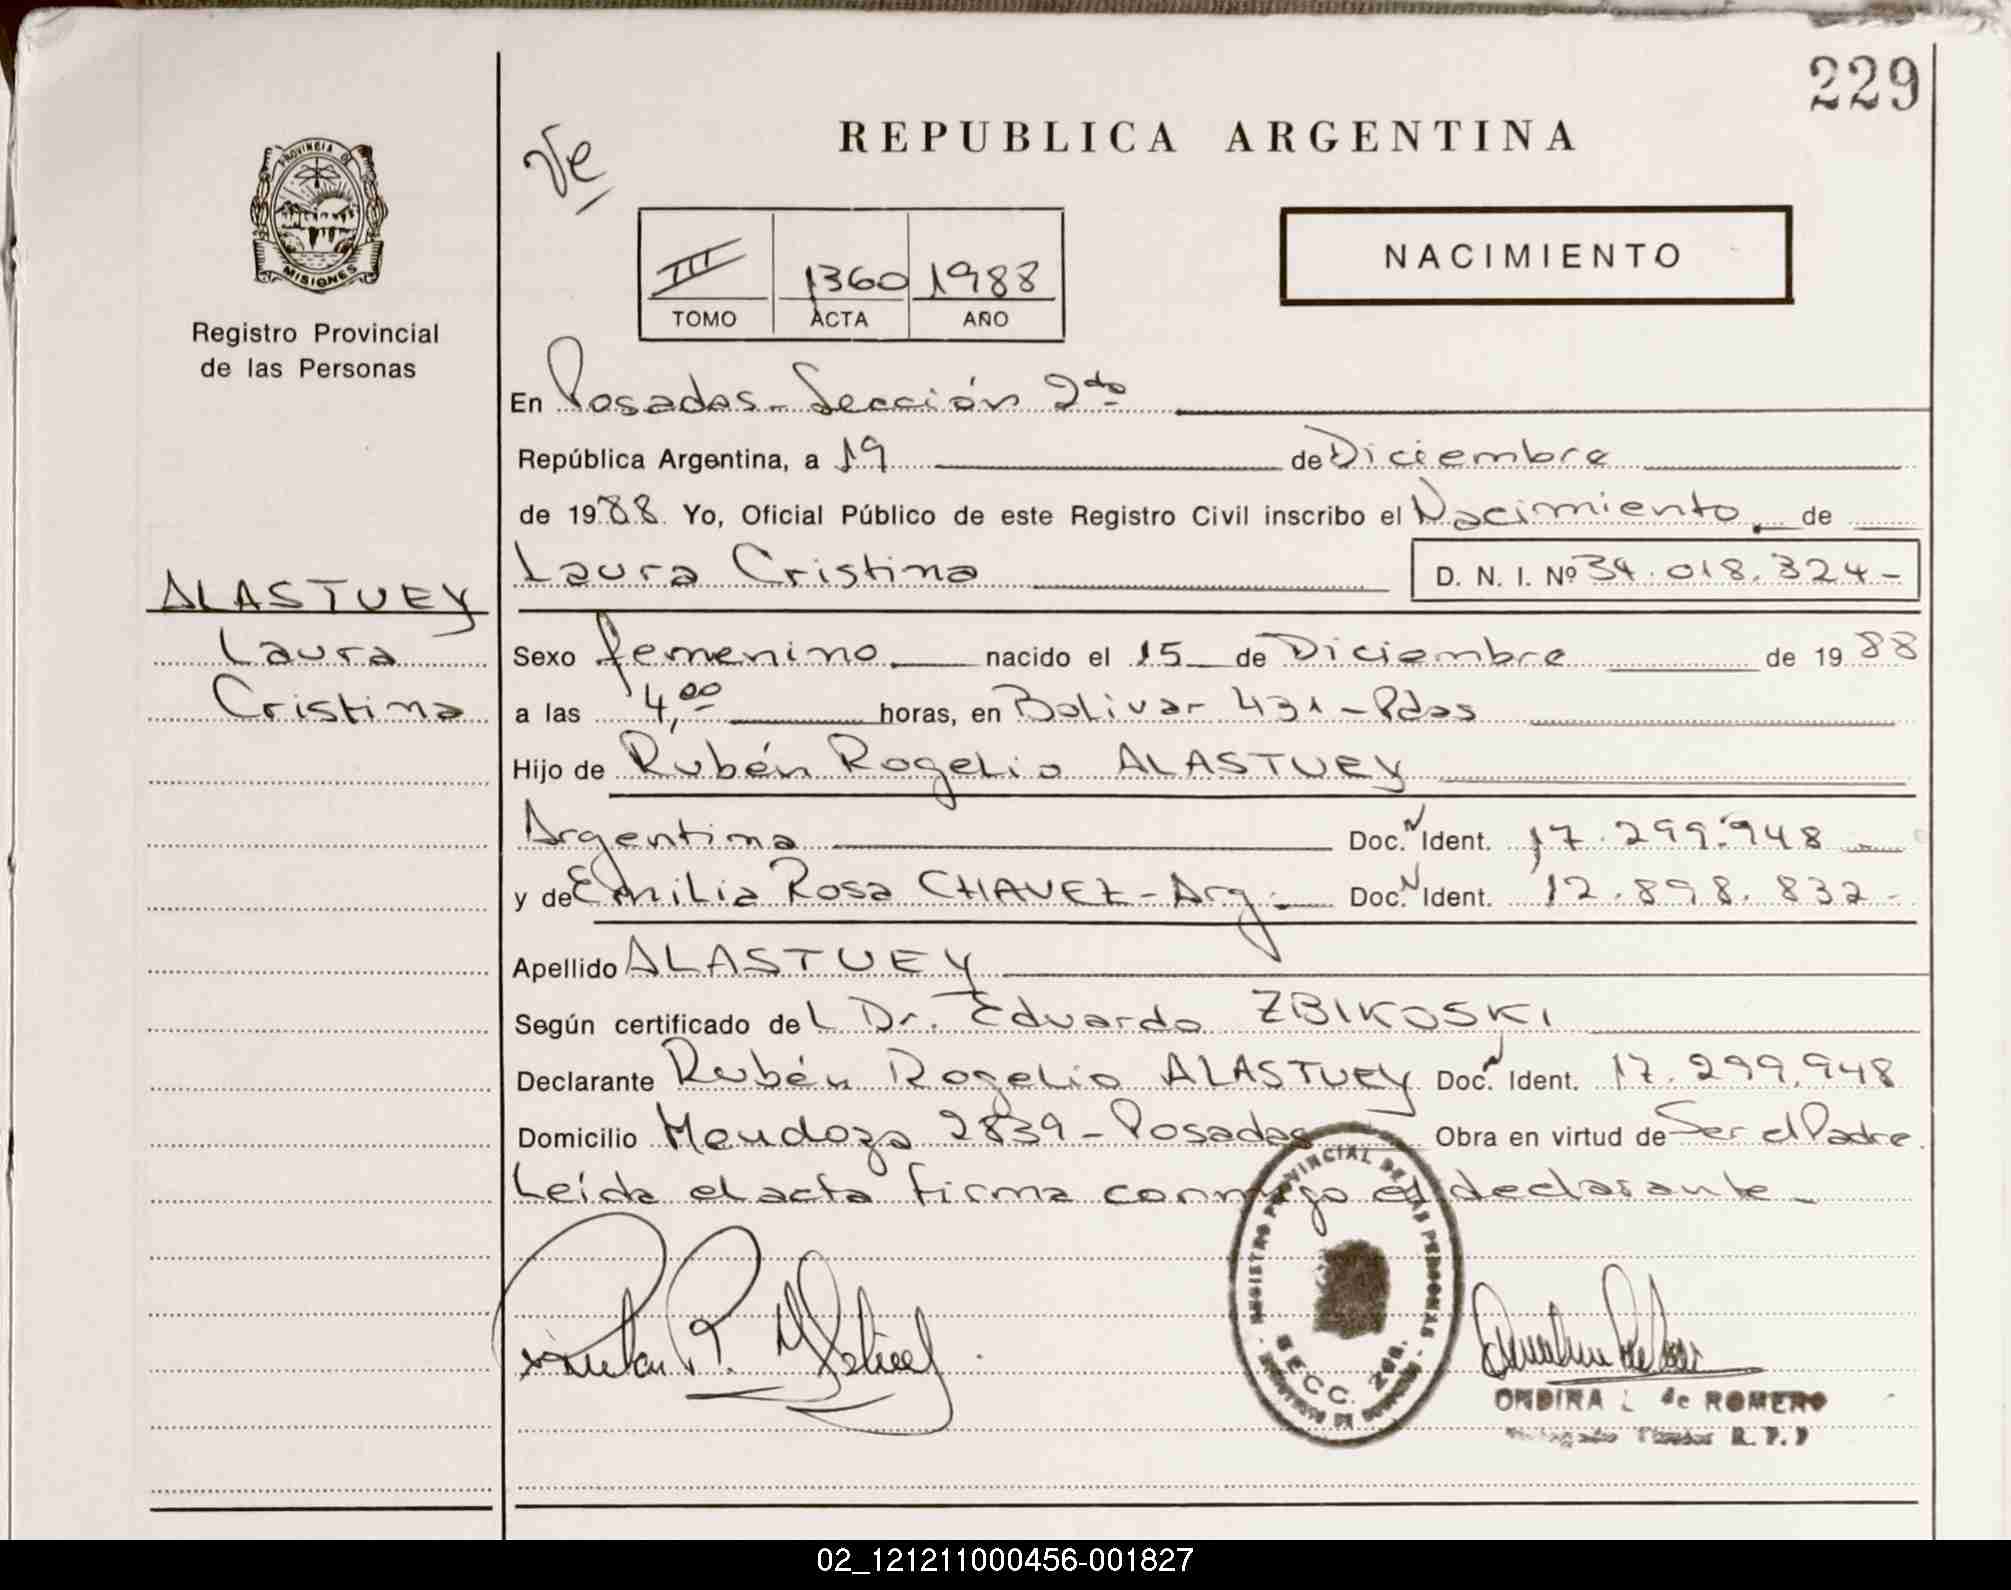 229
REPUBLICA ARGENTINA
Ve
PROVINCIA DE
MISIONES
Registro Provincial
de las Personas
III 1360 1988
TOMO ACTA AÑO
NACIMIENTO
En Posadas - Sección 2da
República Argentina, a 19 de Diciembre
de 1988 Yo, Oficial Público de este Registro Civil inscribo el Nacimiento de
Laura Cristina D. N. I. Nº 34.018.324-
ALASTUEY
Laura
Cristina
Sexo femenino nacido el 15 de Diciembre de 1988
a las 4,00 horas, en Bolivar 431 - Pdas
Hijo de Rubén Rogelio ALASTUEY
Argentina Doc. N Ident. 17.299.948
y de Emilia Rosa CHAVEZ - Arg. Doc. N Ident. 12.898.832-
Apellido ALASTUEY
Según certificado del Dr. Eduardo ZBIKOSKI
Declarante Rubén Rogelio ALASTUEY Doc. N Ident. 17.299.948
Domicilio Mendoza 2839 - Posadas Obra en virtud de Ser el Padre.
Leída el acta firma conmigo el declarante -
REGISTRO PROVINCIAL DE LAS PERSONAS
SECC. 2da.
ONDINA L de ROMERO
R. P. P
02_121211000456-001827